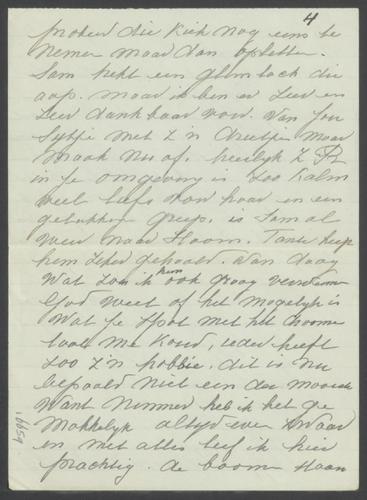 4
probeer die kiek nog eens te
nemen maar dan opletten.
Sam trekt een glimlach die
aap. maar ik ben er zeer en
zeer dankbaar voor. Van Jou
Sytje met z'n drietjes maar
maak No of. heerlyk z
in je omgeving is zoo kalm
veel liefs van haar en een
gebakken greep. is Sam al
weer naar Hoorn. Tante heeft
hem zeker gehaald. Van daag
wat zou ik hem ook graag verwennen
God weet of het mogelyk is
Wat je Spot met het
laat me koud, ieder heeft
zoo z'n hobbie. dit is nu
bepaald niet een der mooiste
Want nimmer heb ik het ge
makkelyk altyd even zwaar
en met alles leef ik hier
prachtig. de boomen staan
16659